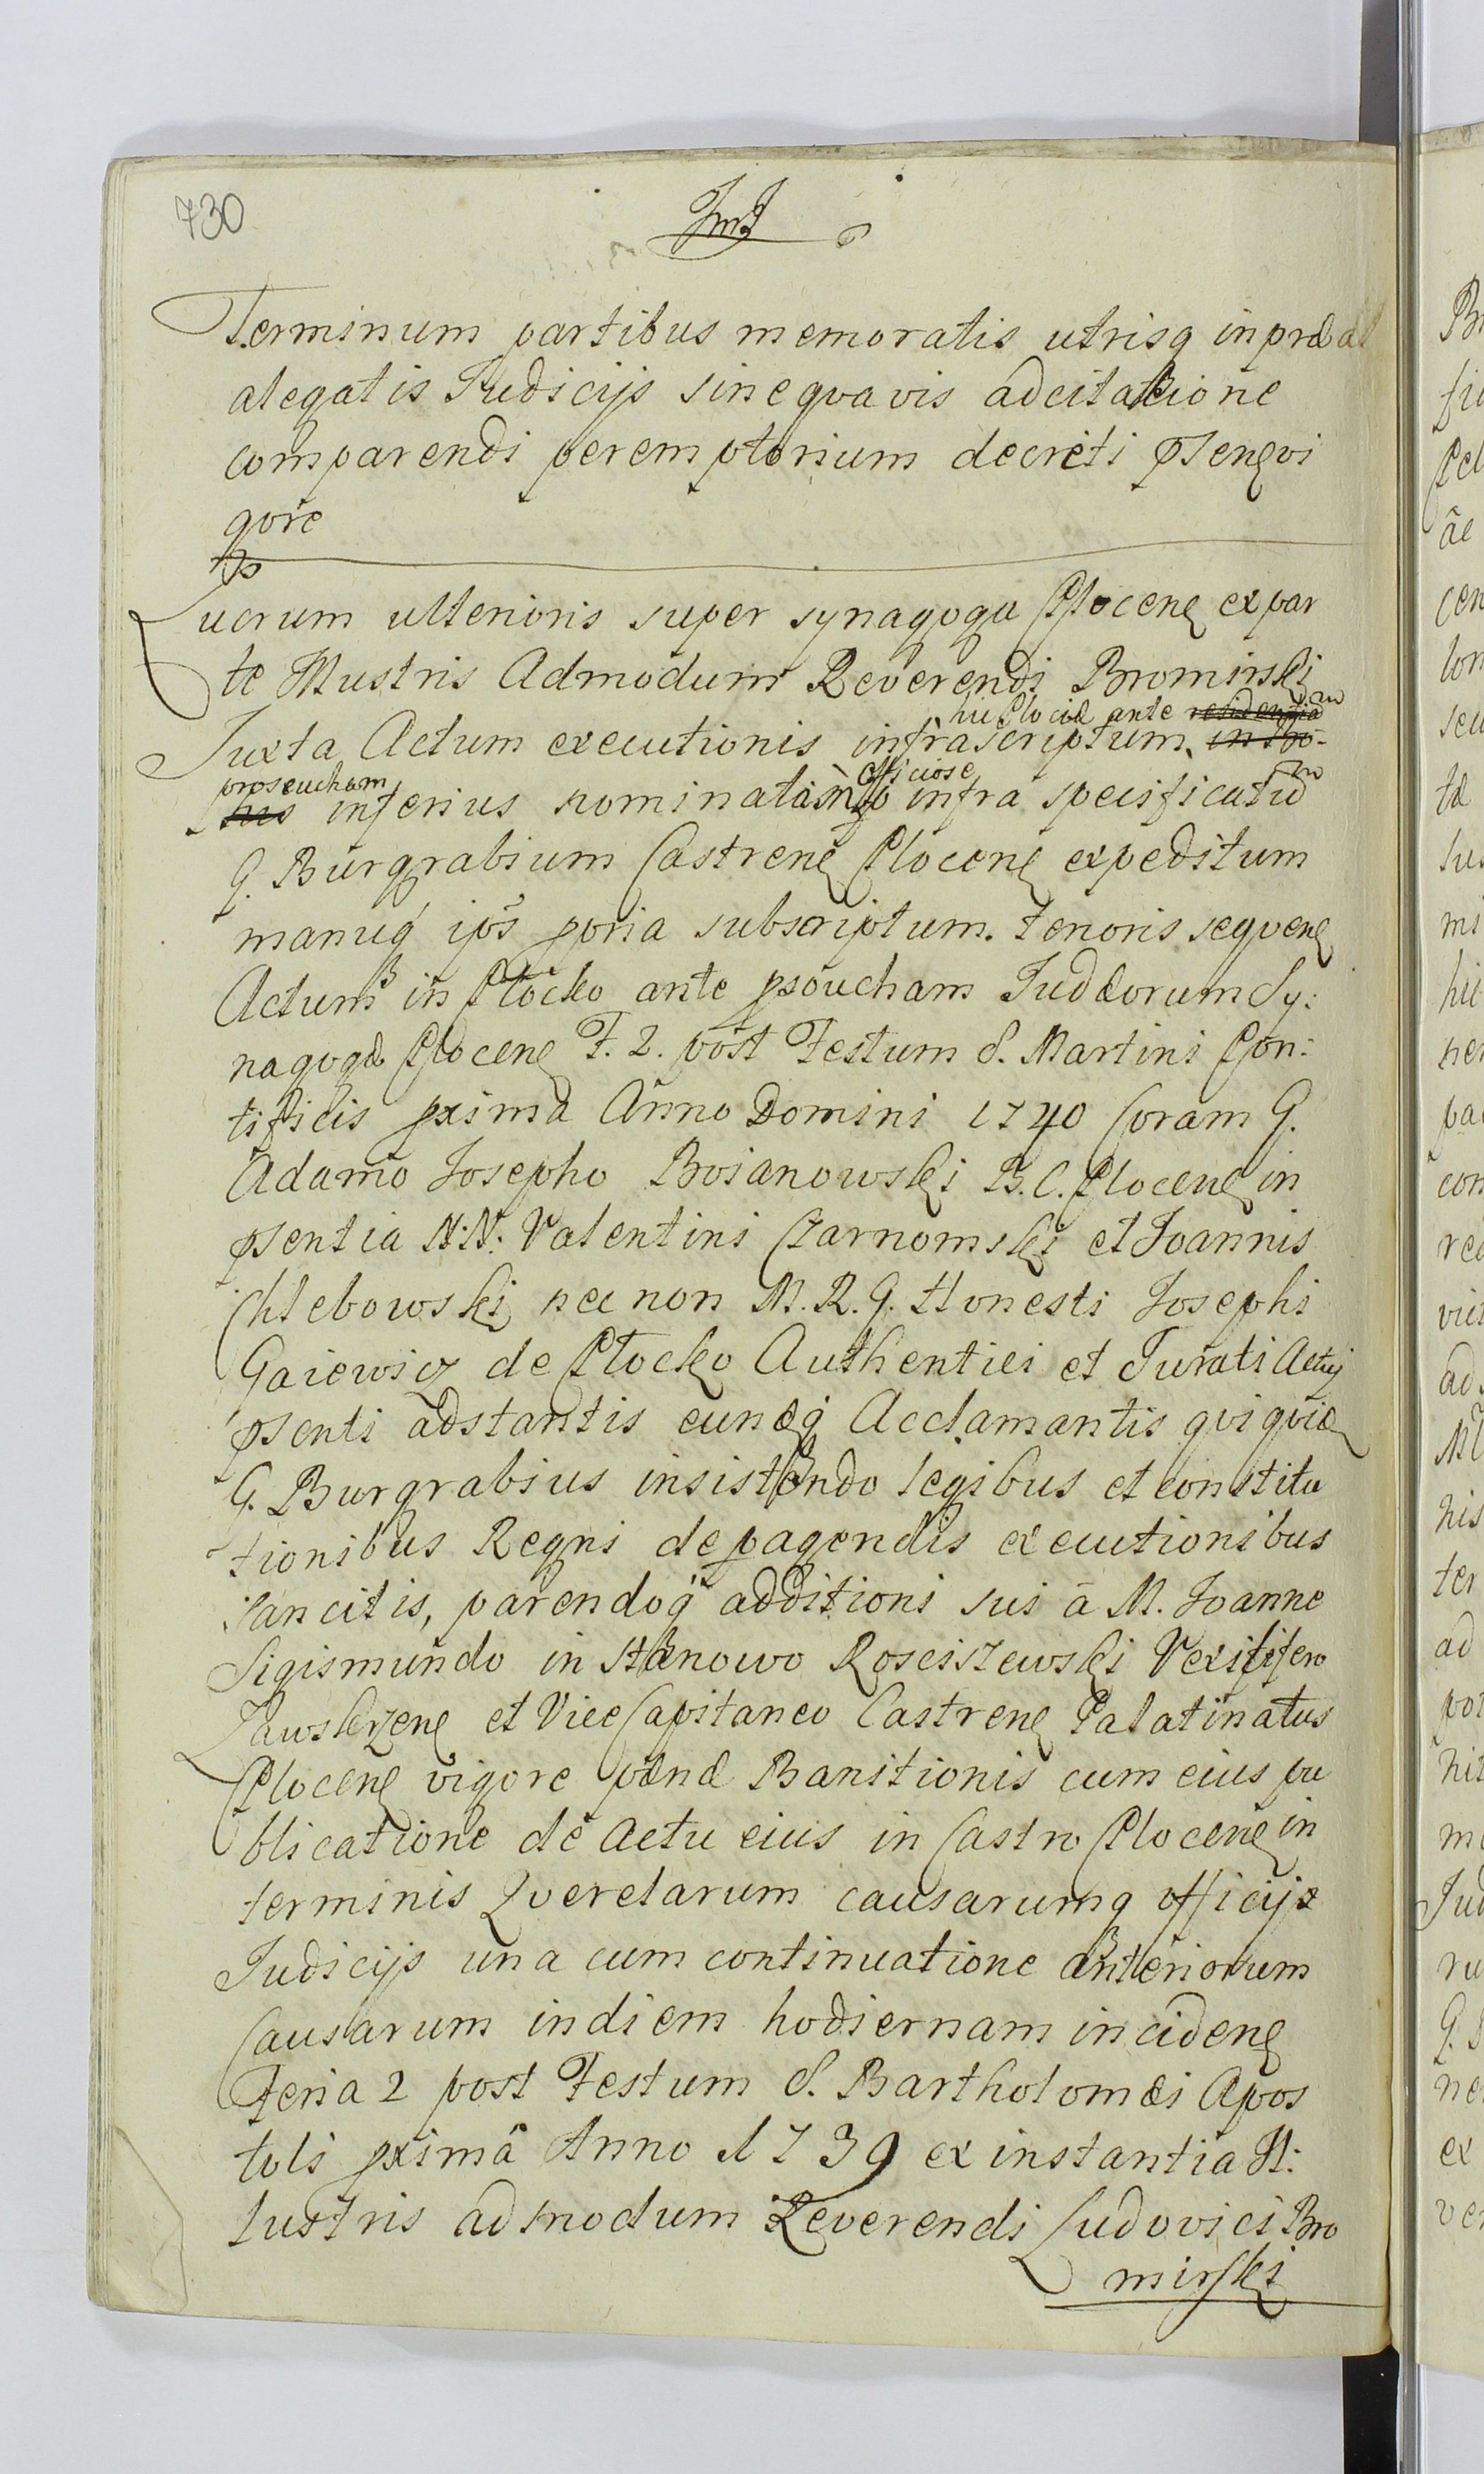 730
Terminum partibus memoratis utrisq in præal
alegatis Judicijs sine qvavis adcitatione
comparendi peremptorium decreti pseneqvi
gore
Lucrum ulterioris super synagoga Plocene expar
te Illustris Admodum Reverendi Bromirski
hic Plociæ ante residentiam
Juxta Actum executionis infrascriptum,
proseucham officiose
inferius nominatam infra specificatum
G. Burgrabium Castrene Plocene expeditum
manuq ips ppria subscriptum. tenoris seqvene
Actum in Płocko ante psoucham Judæorum Sy:
nagogæ Plocene F. 2. post Festum S. Martini Pon:
tificis pxima Anno Domini 1740 Coram G.
Adamo Josepho Boianowski B. C. Plocene in
psentia N:N: Valentini Czarnomski et Joannis
Chlebowski nec non M. R. G. Honesti Josephi
Gaiewicz de Płocko Authentici et Jurati Actuj
psenti adstantis eundq Acclamantis qvi qvid
G. Burgrabius insistendo legibus et constitu
tionibus Regni de pagendis executionibus
sancitis, parendoq additioni sui a M. Joanne
Sigismundo in Stanowo Rosciszewski Vexilifero
Zawskrzene et Vice Capitaneo Castrene Palatinatus
Plocene vigore pænæ Banitionis cum eius pu
blicatione de actu eius in Castro Plocene in
terminis Qverelarum causarumq officij
Judicijs una cum continuatione anteriorum
Causarum in diem hodiernam incidene
Feria 2 post Festum S. Bartholomæi Apos
toli pxima Anno 1739 ex instantia Il:
lustris admodum Reverendi Ludovici Bro
mirski